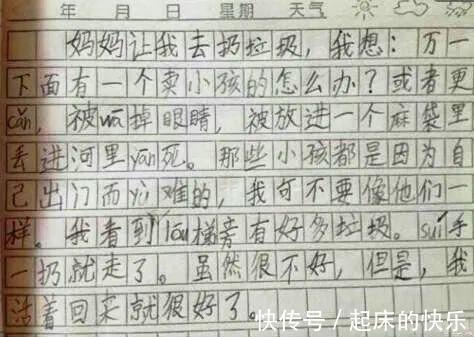 年 月 日 星期 天气
妈妈让我去扔垃圾，我想：万一
下面有一个卖小孩的怎么办？或者更
cǎn，被wā掉眼睛，被放进一个麻袋里
丢进河里yān死。那些小孩都是因为自
己出门而yù难的，我可不要像他们一
样。我看到lóu梯旁有好多垃圾。suí手
一扔就走了。虽然很不好，但是，我
活着回来就很好了。
快传号／起床的快乐